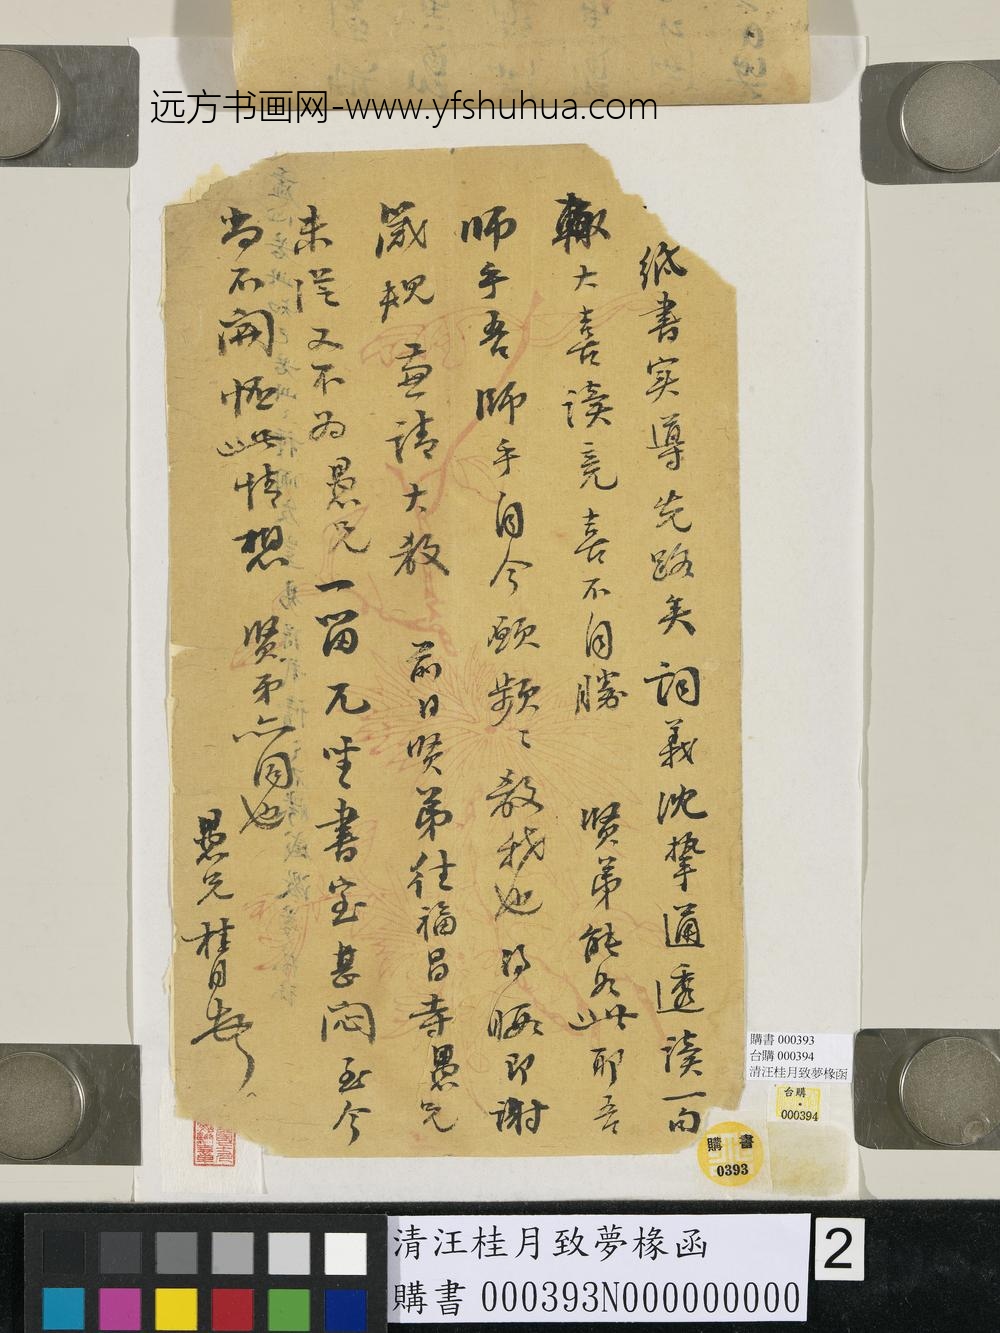 远方书画网-www.yfshuhua.com
紙書實導先路矣詞義沈摯通透讀一句
輒大喜讀竟喜不自勝 賢弟能如此耶吾
師乎吾師乎自今願頻〻教我也得暇即謝
箴規 並請大教 前日賢弟往福昌寺愚兄
未從又不為愚兄一留兀坐書室甚悶至今
尚不開懷此情想 賢弟亦同也
愚兄桂月
購書 000393
台購 000394
清汪桂月致夢椽函
台購
000394
購書
0393
清汪桂月致夢椽函
購書 000393N000000000
2